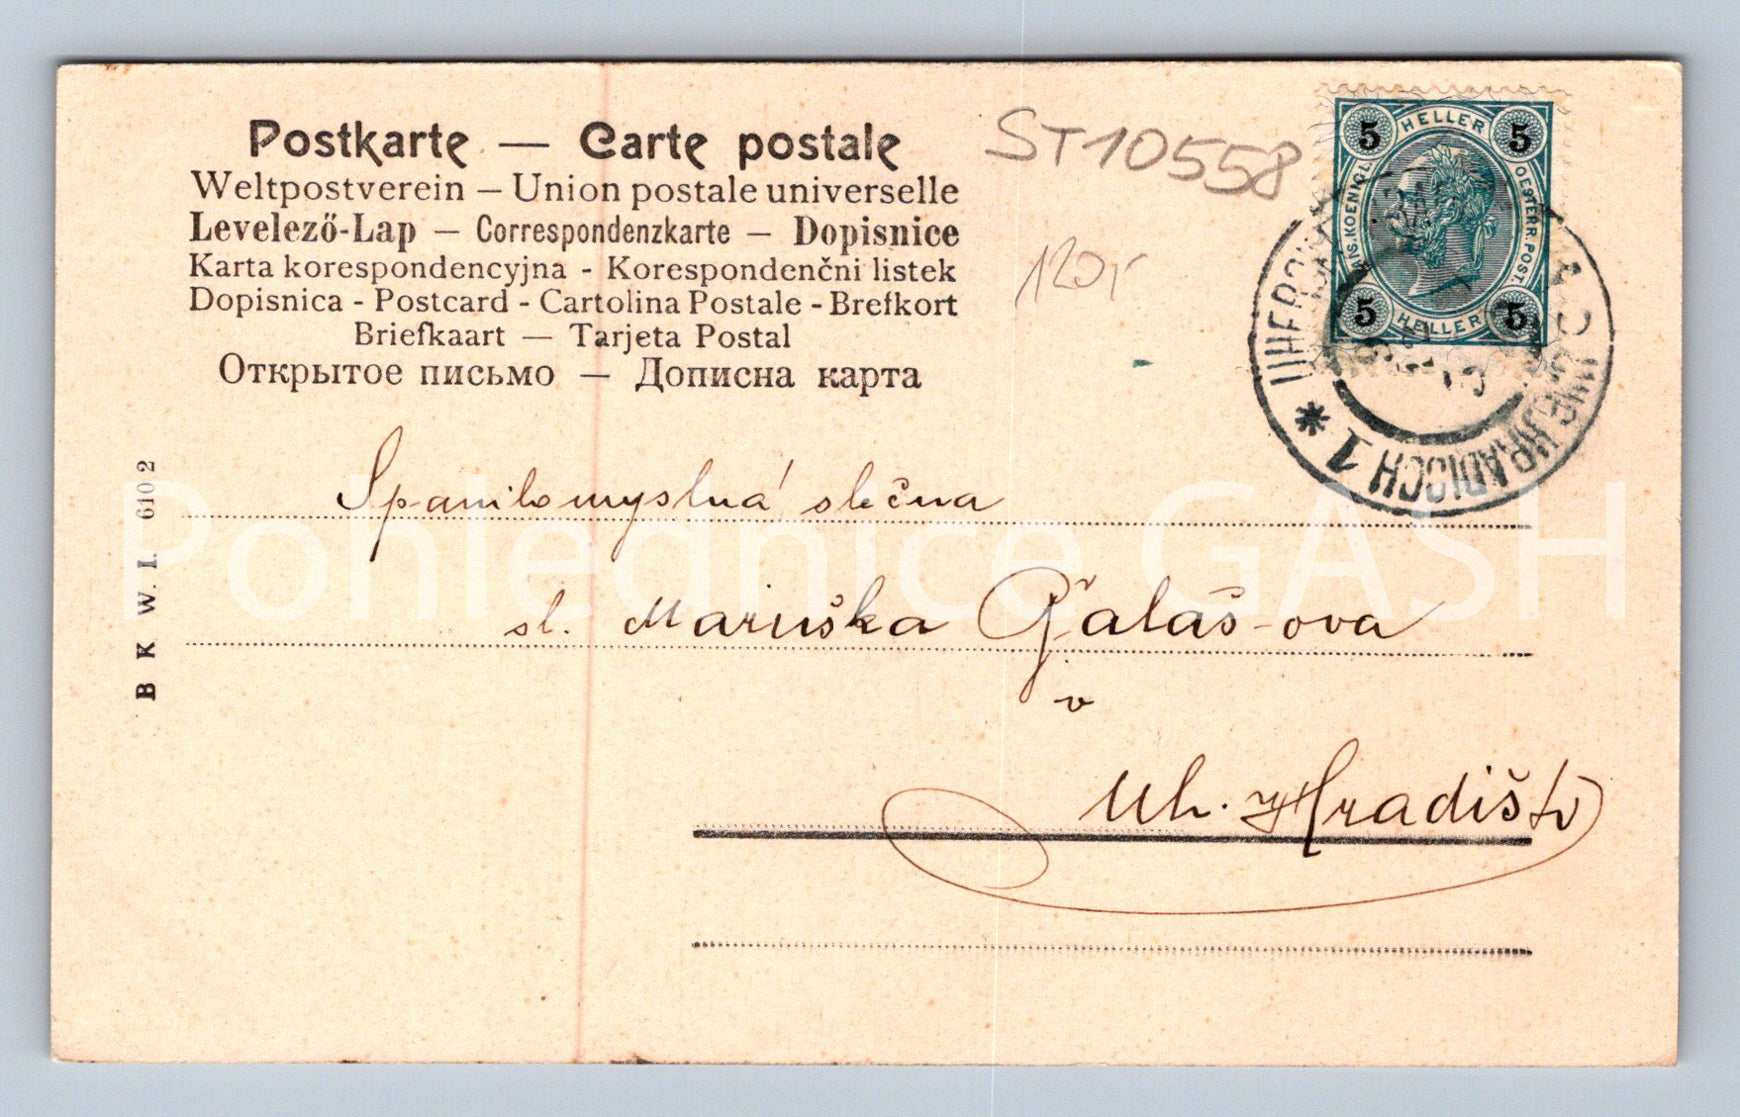 Postkarte — Carte postale
Weltpostverein – Union postale universelle
Levelező-Lap – Correspondenzkarte – Dopisnice
Karta korespondencyjna - Korespondenčni listek
Dopisnica - Postcard - Cartolina Postale - Brefkort
Briefkaart — Tarjeta Postal
Открытое письмо — Дописна карта
ST10558
120,-
5 HELLER 5
OESTERR. POST.
5 HELLER 5
UNG. HRADISCH 1 *
B K W. I. 610 2
Spanilomyslná slečna
sl. Maruška Galaš-ova
v
Uh. Hradišti
Pohlednice GASH